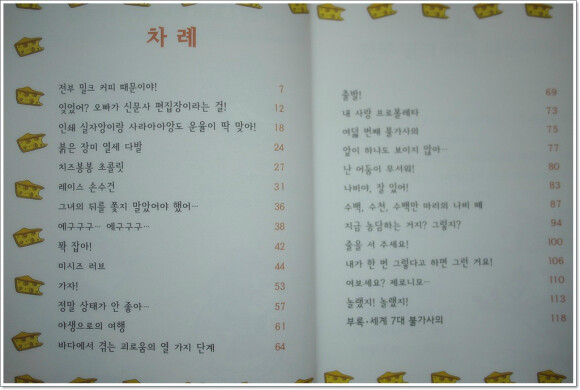 차 례
전부 밀크 커피 때문이야! 7
잊었어? 오빠가 신문사 편집장이라는 걸! 12
인쇄 실자망이랑 사라아아앙도 운율이 딱 맞아! 18
붉은 장미 열세 다발 24
치즈봉봉 초콜릿 27
레이스 손수건 31
그녀의 뒤를 쫓지 말았어야 했어… 36
에구구구… 에구구구… 38
꽉 잡아! 42
미시즈 러브 44
가자! 53
정말 상태가 안 좋아… 57
야생으로의 여행 61
바다에서 겪는 괴로움의 열 가지 단계 64
출발! 69
내 사랑 프로볼레타 73
여덟 번째 불가사의 75
앞이 하나도 보이지 않아… 77
난 어둠이 무서워! 80
나비야, 잘 있어! 83
수백, 수천, 수백만 마리의 나비 떼 87
지금 농담하는 거지? 그렇지? 94
줄을 서 주세요! 100
내가 한 번 그렇다고 하면 그런 거요! 106
여보세요? 제로니모… 110
놀랬지! 놀랬지! 113
부록·세계 7대 불가사의 118